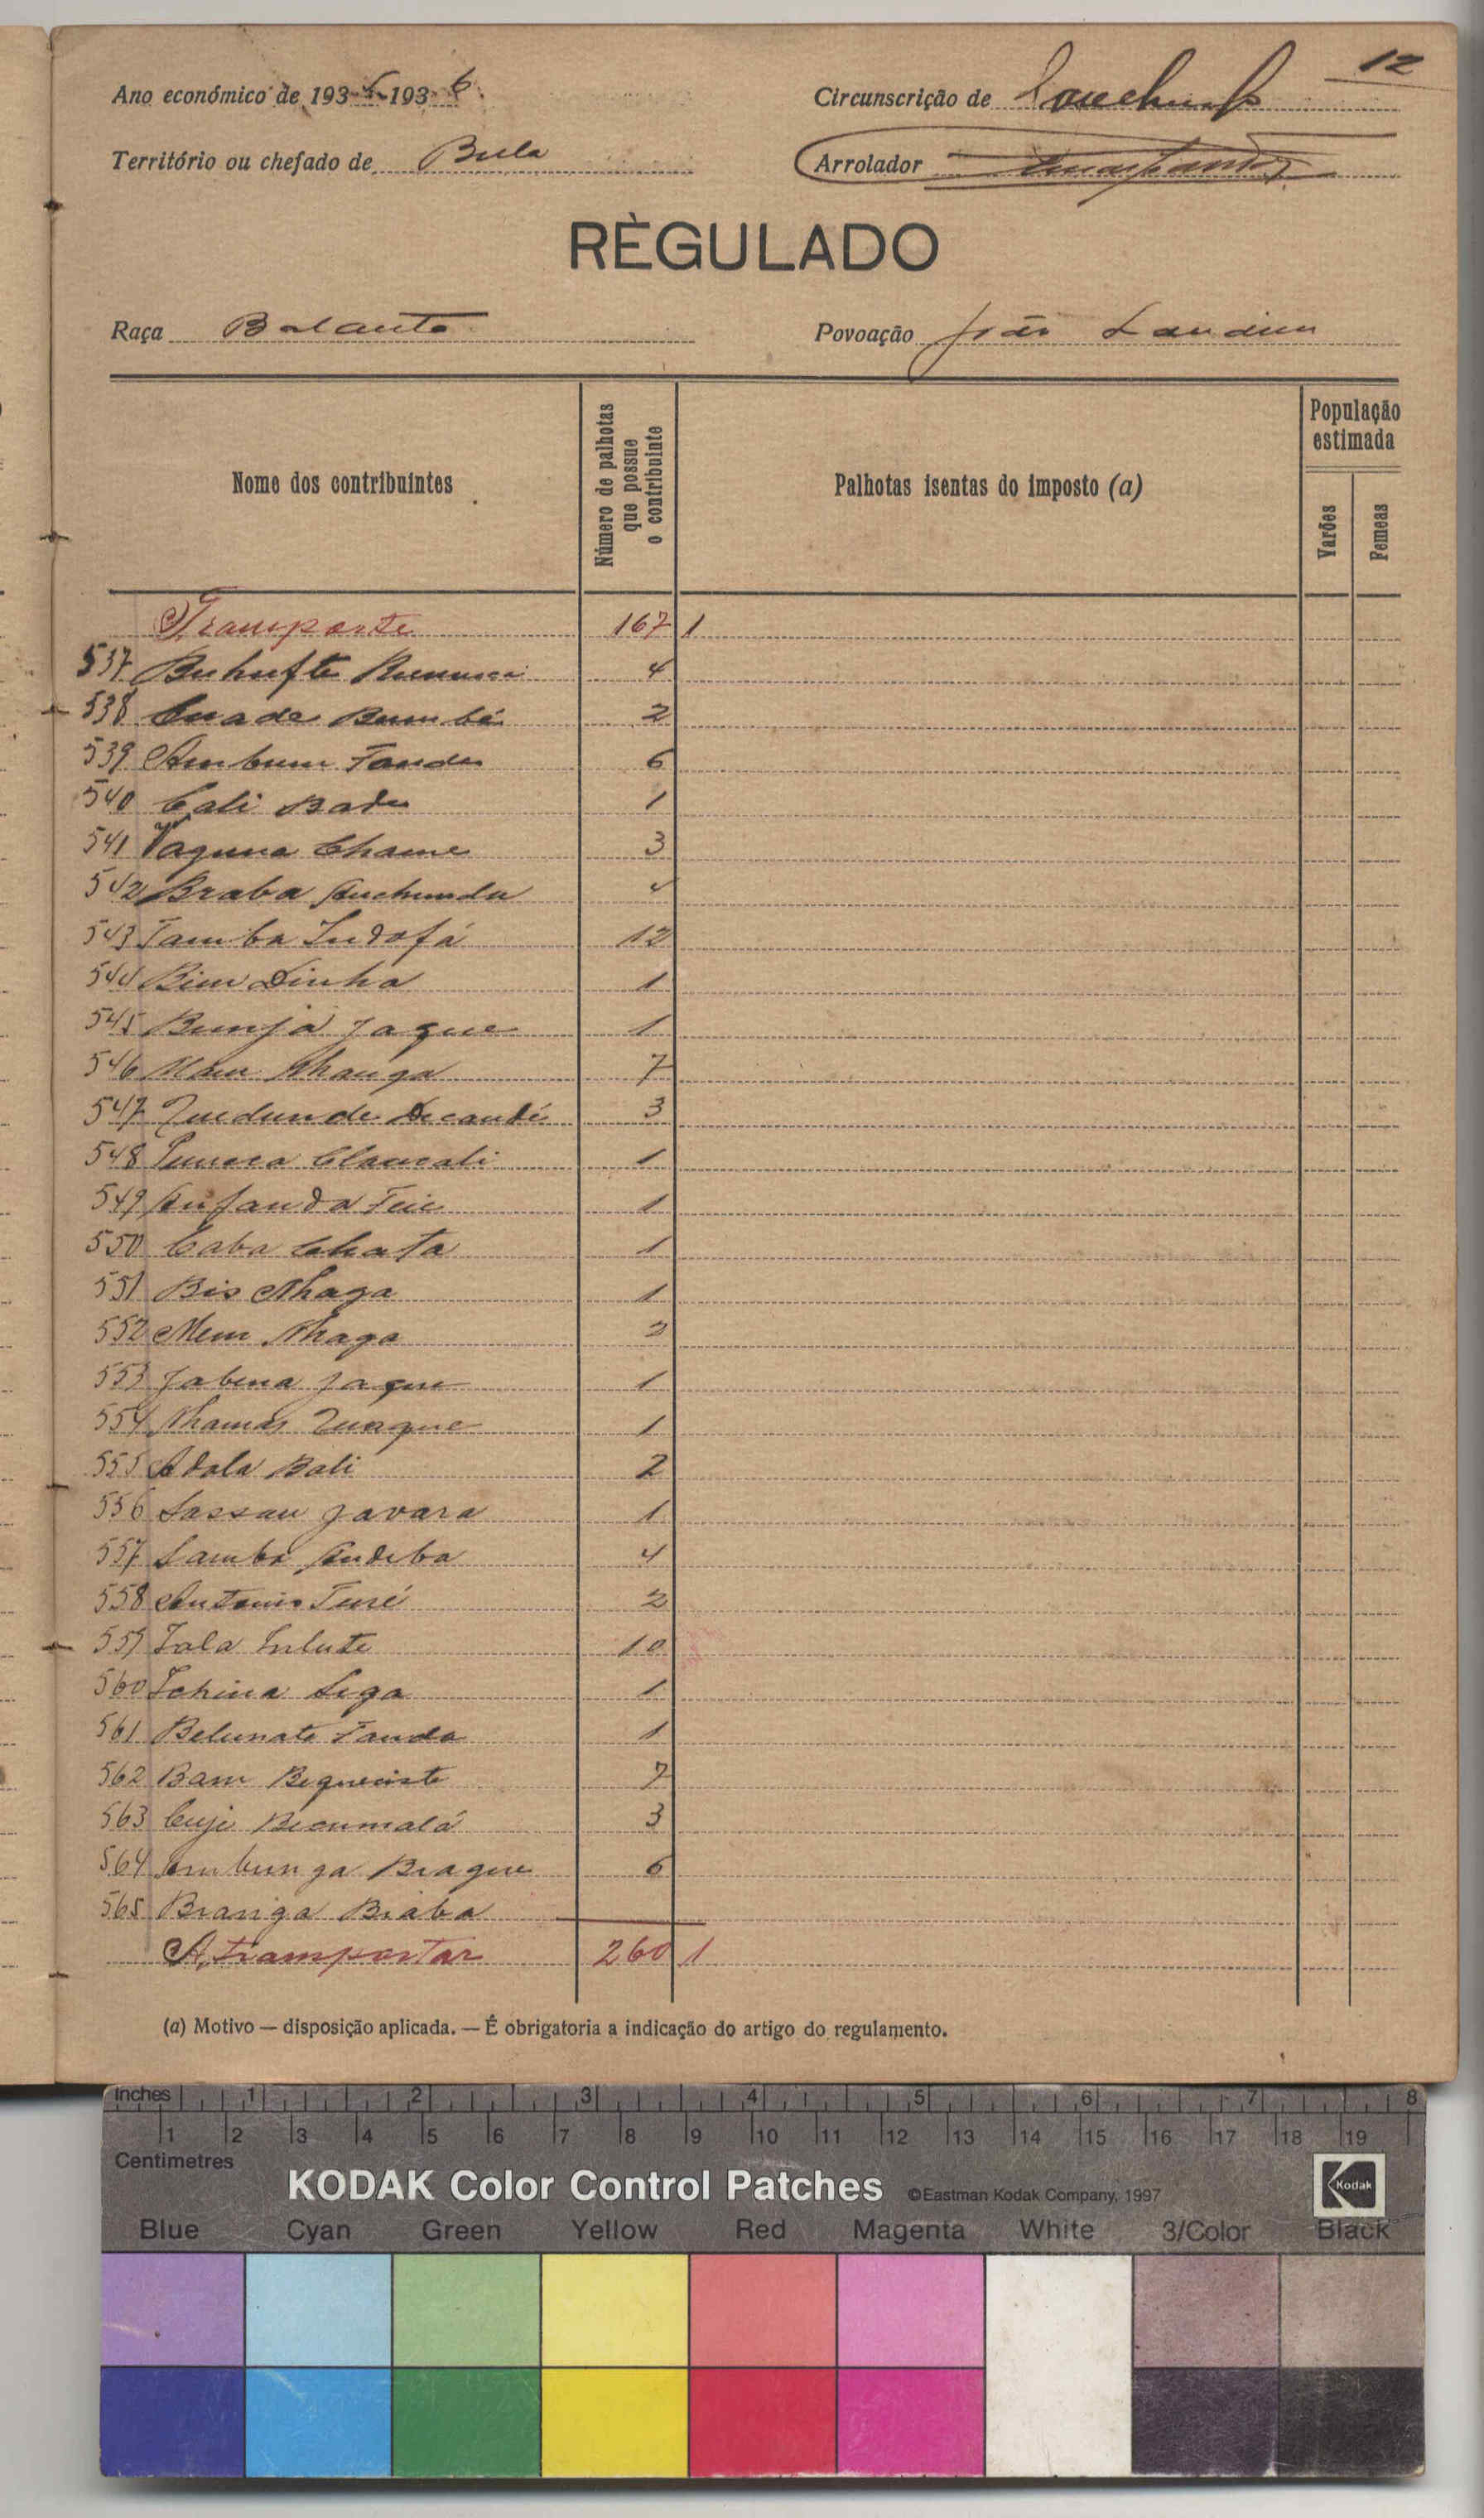 12
Ano económico de 193 -193 6
Circunscrição de
Território ou chefado de Bula
Arrolador
RÈGULADO
Raça Balanta
Povoação João Landim
Nome dos contribuintes
Número de palhotas que possue o contribuinte
Palhotas isentas do imposto (a)
População estimada
Varões
Femeas
Transporte 167 1
537 4
538 Bumbé 2
539 Ambum Fande 6
540 Cali Bade 1
541 Vaguna Chame 3
542 Braba 4
543 Tamba Indofá 12
544 Bim Dinha 1
545 Bunja Jaque 1
546 Nhanga 7
547 3
548 1
549 1
550 Caba Chata 1
551 Bis Nhaga 1
552 Mem Nhaga 2
553 Jabena Jaque 1
554 Quaque 1
555 Adala Bali 2
556 Sassau Javara 1
557 Samba Andeba 4
558 Antonio Turé 2
559 10
560 Tchina Sega 1
561 Belunate Fanda 1
562 Bam 7
563 Becumalá 3
564 Ambunga Braque 6
565 Branga Biaba
A transportar 260 1
(a) Motivo — disposição aplicada. — É obrigatoria a indicação do artigo do regulamento.
Inches 1 2 3 4 5 6 7 8
1 2 3 4 5 6 7 8 9 10 11 12 13 14 15 16 17 18 19
Centimetres
KODAK Color Control Patches ©Eastman Kodak Company, 1997 Kodak
Blue Cyan Green Yellow Red Magenta White 3/Color Black